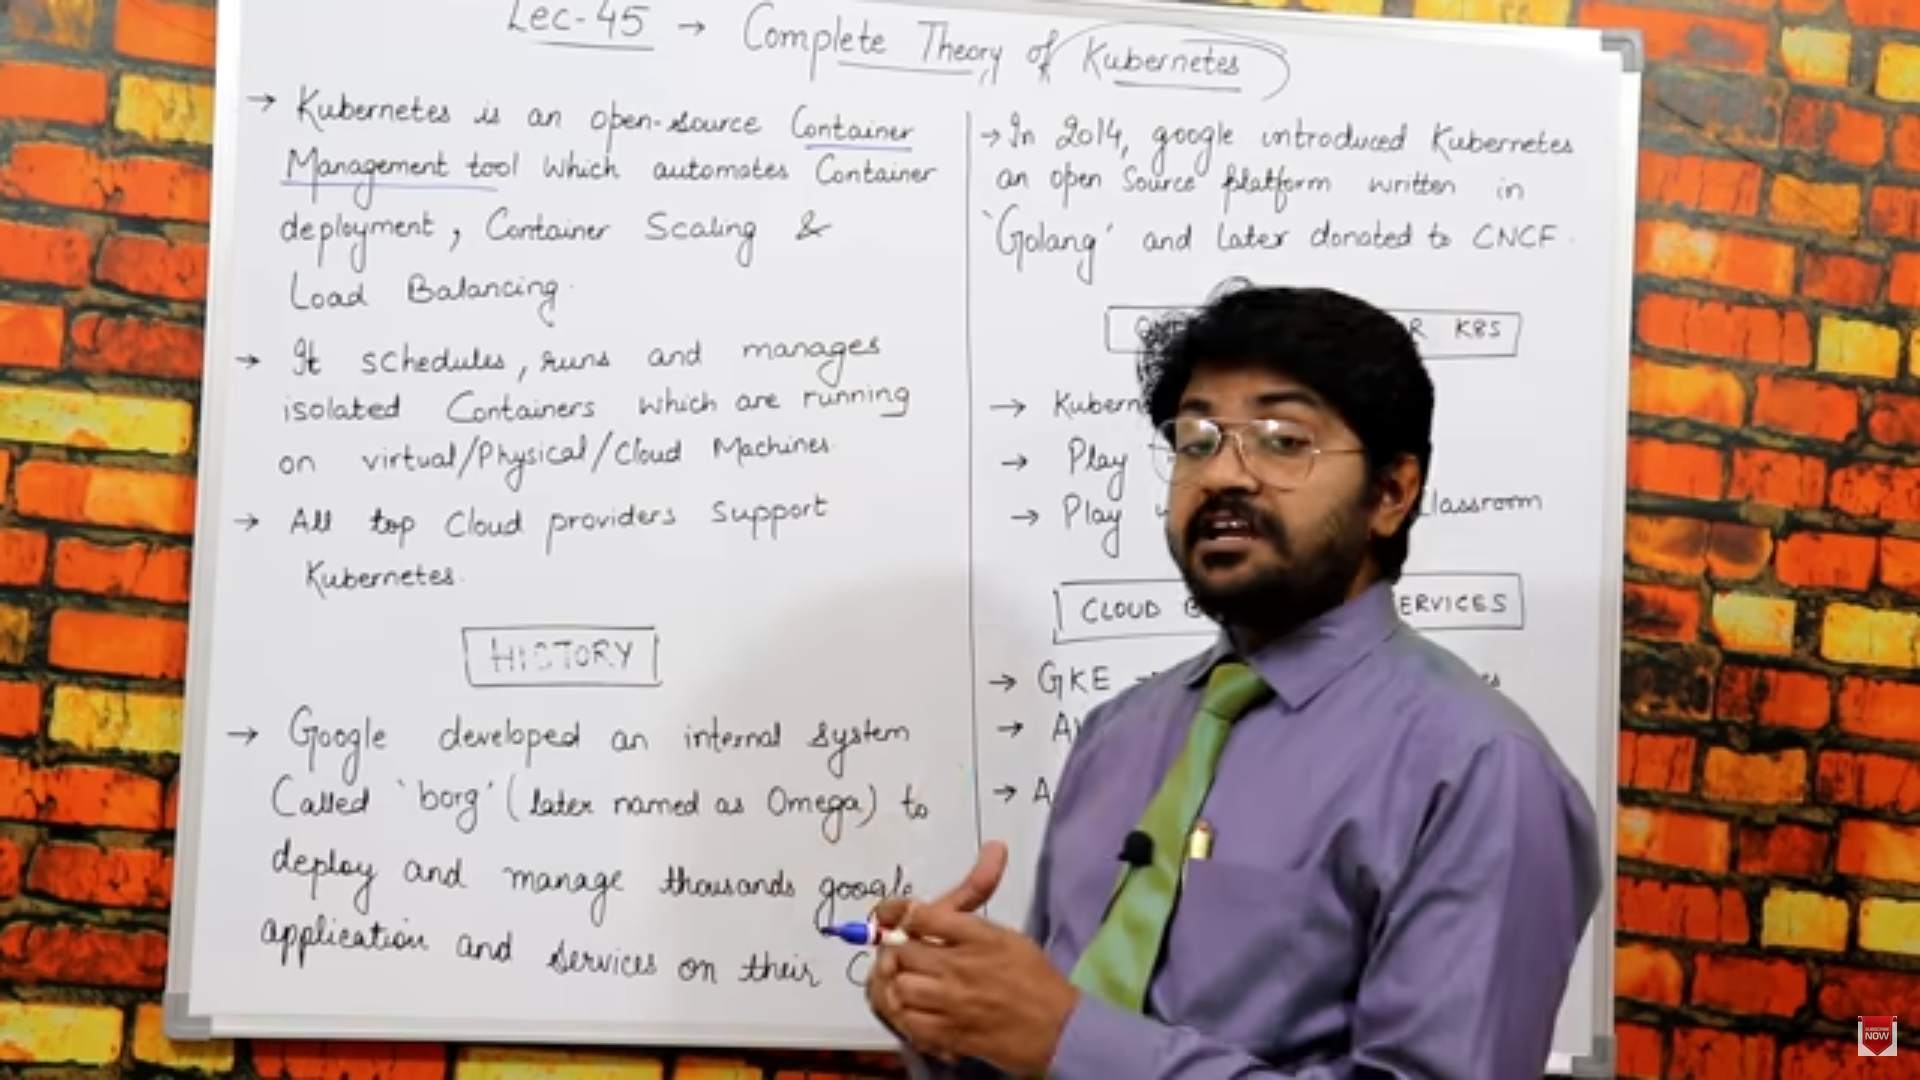 Lec-45 → Complete Theory of Kubernetes
→ Kubernetes is an open-source Container
Management tool which automates Container
deployment, Container Scaling &
Load Balancing.
→ It schedules, runs and manages
isolated Containers which are running
on virtual/Physical/Cloud Machines.
→ All top Cloud providers support
Kubernetes.
HISTORY
→ Google developed an internal system
Called 'borg' (later named as Omega) to
deploy and manage thousands google
application and services on their
→ In 2014, google introduced Kubernetes
an open Source platform written in
'Golang' and later donated to CNCF.
K8S
→
→ Play
→ Play Classroom
CLOUD SERVICES
→ GKE →
→
→
SUBSCRIBE
NOW